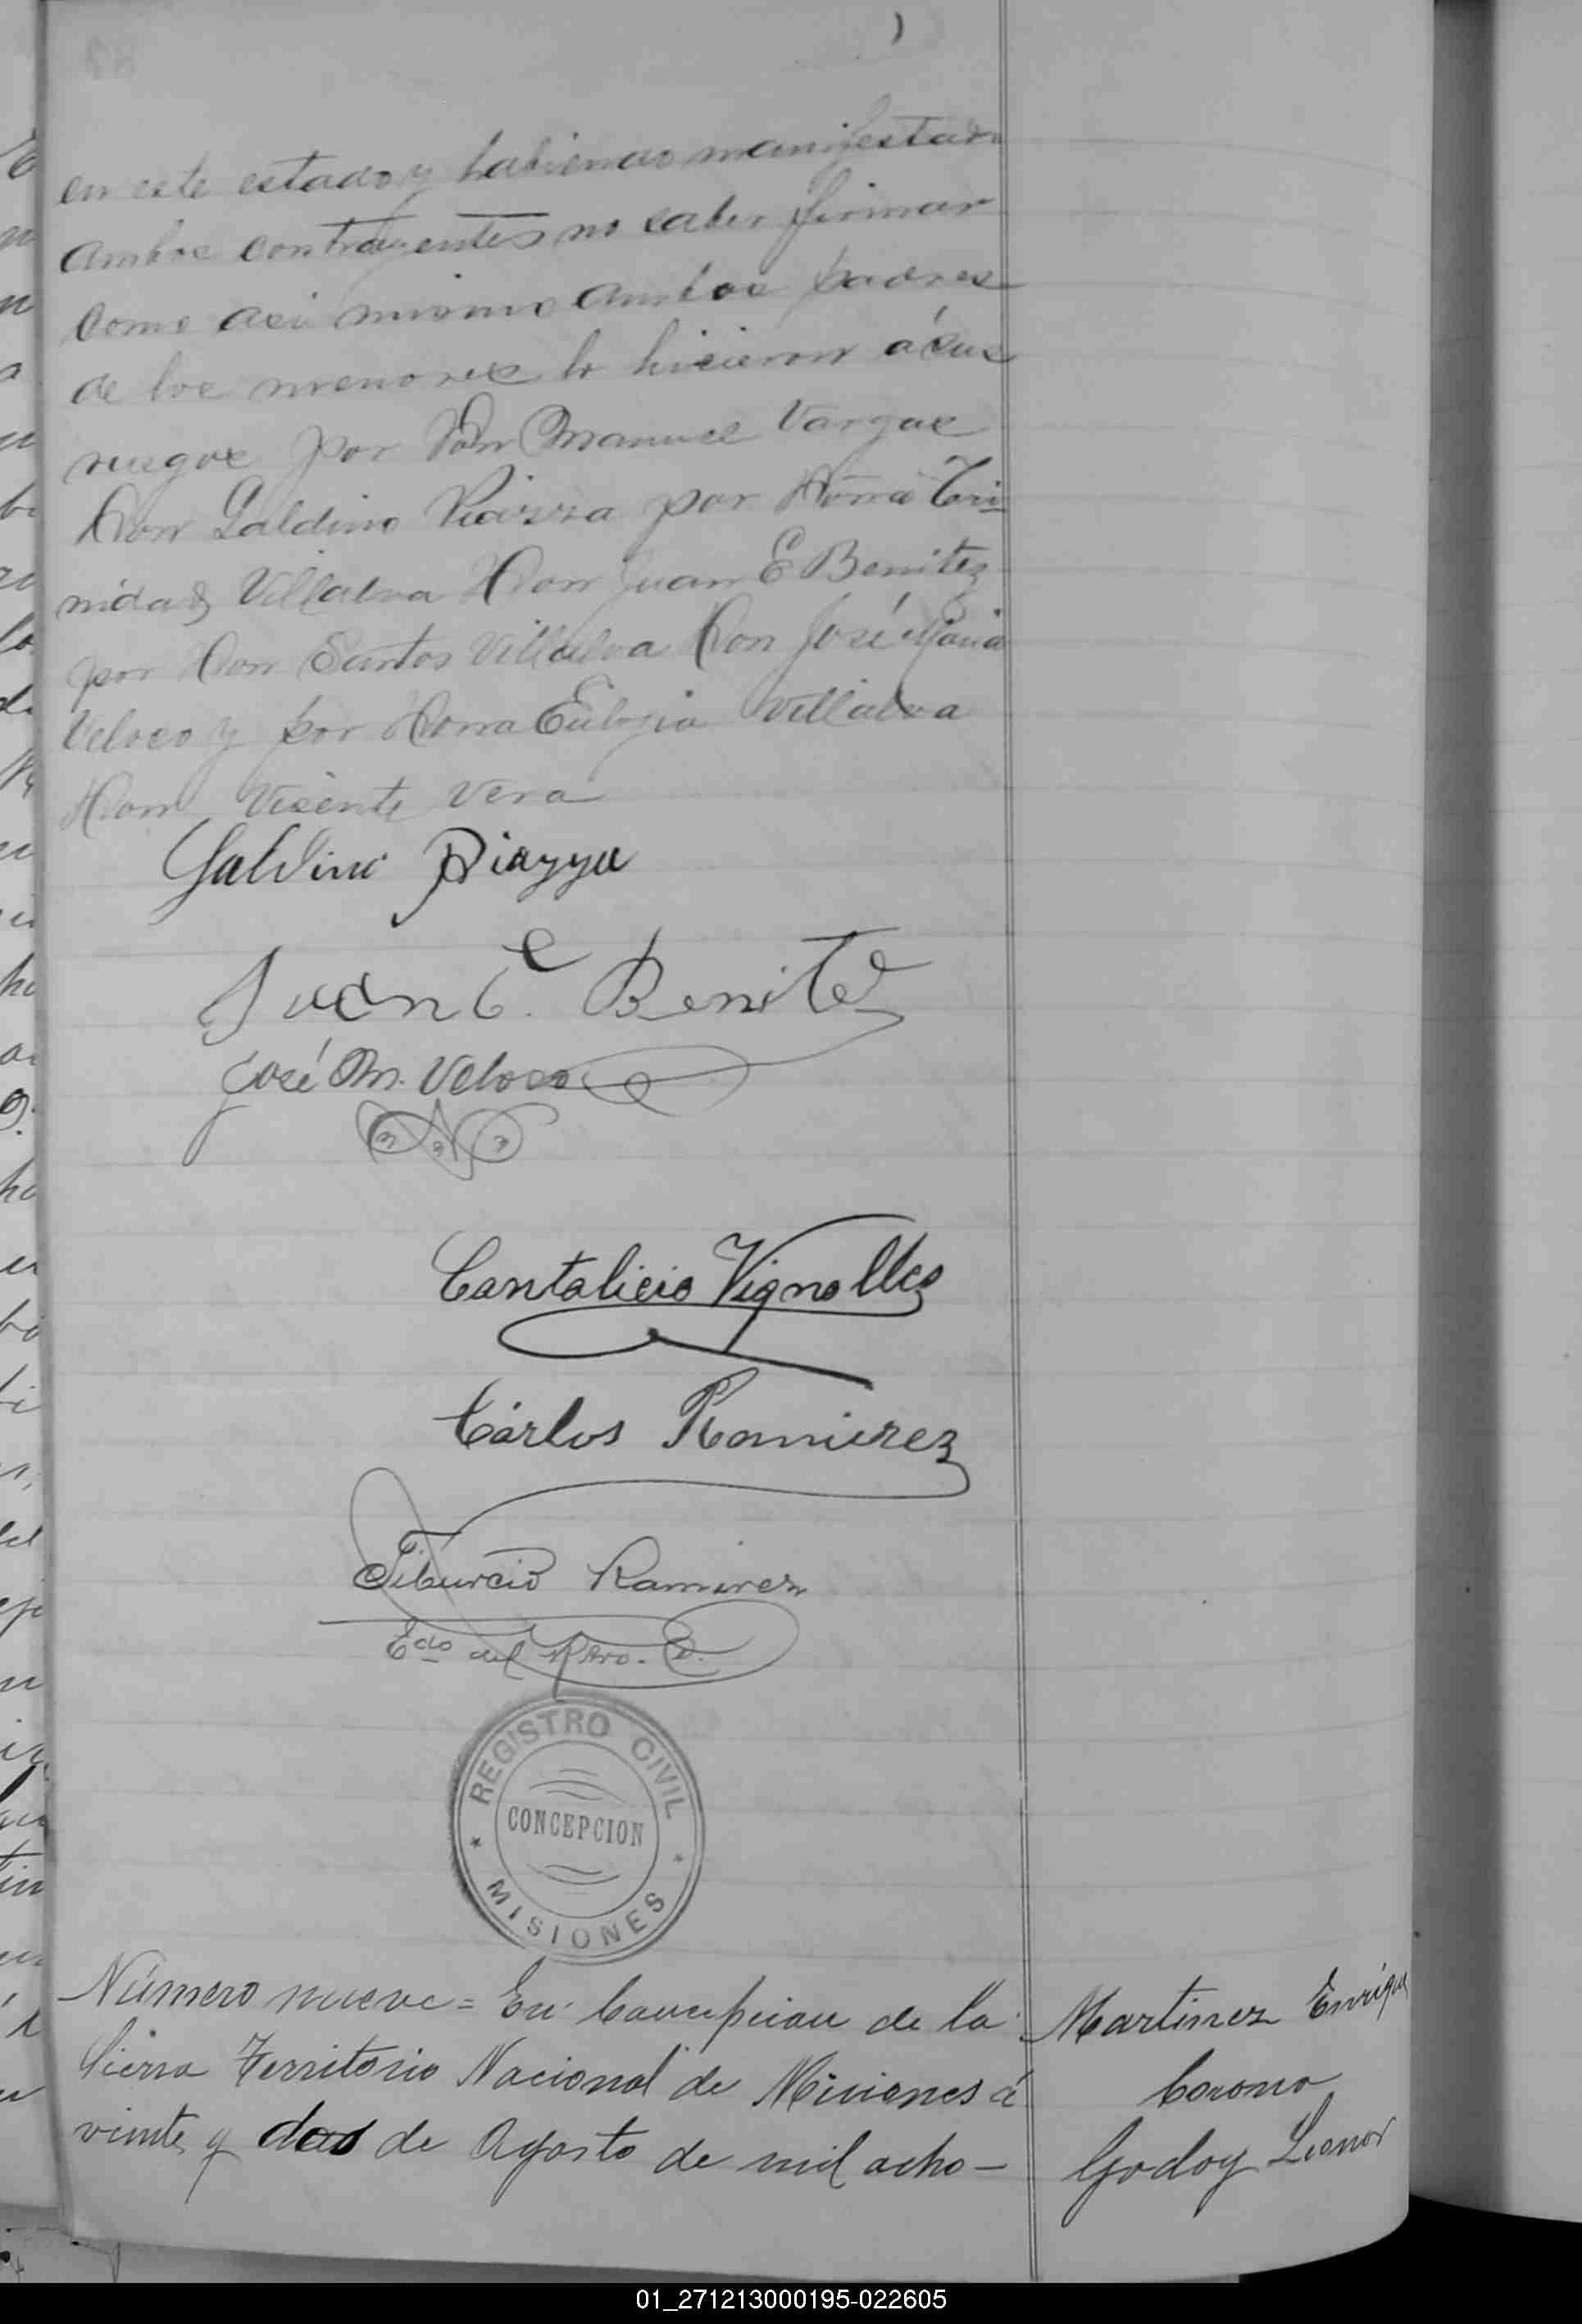 en este estado y habiendo manifestado
ambos contrayentes no saber firmar
como asi mismo ambos padres
de los menores lo hicieron á sus
ruegos por Don Manuel Vargas
Don Galdino Piazza por Doña Tri-
nidad Villalva Don Juan E Benitez
por Don Santos Villalva Don José Maria
Veloso y por Doña Eulogia Villalva
Don Vicente Vera
Galdino Piazza
Juan E. Benitez
José M. Veloso
Cantalicio Vignolles
Cárlos Ramirez
Tiburcio Ramirez
Edo del Rtro. C.
REGISTRO CIVIL
CONCEPCION
MISIONES
Número nueve = En Concepcion de la
Sierra Territorio Nacional de Misiones á
veinte y dos de Agosto de mil ocho-
Martinez Enrique
Corono
Godoy Leonor
01_271213000195-022605